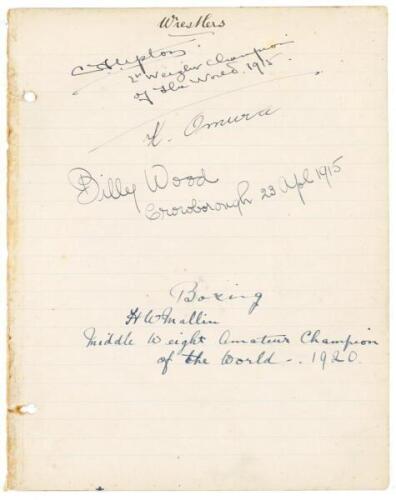 Wrestlers
Upton
Weight Champion
of the World. 1915.
K. Omura
Billy Wood
Crowborough 23 Apl 1915
Boxing
H W Mallin
Middle Weight Amateur Champion
of the World - . 1920.